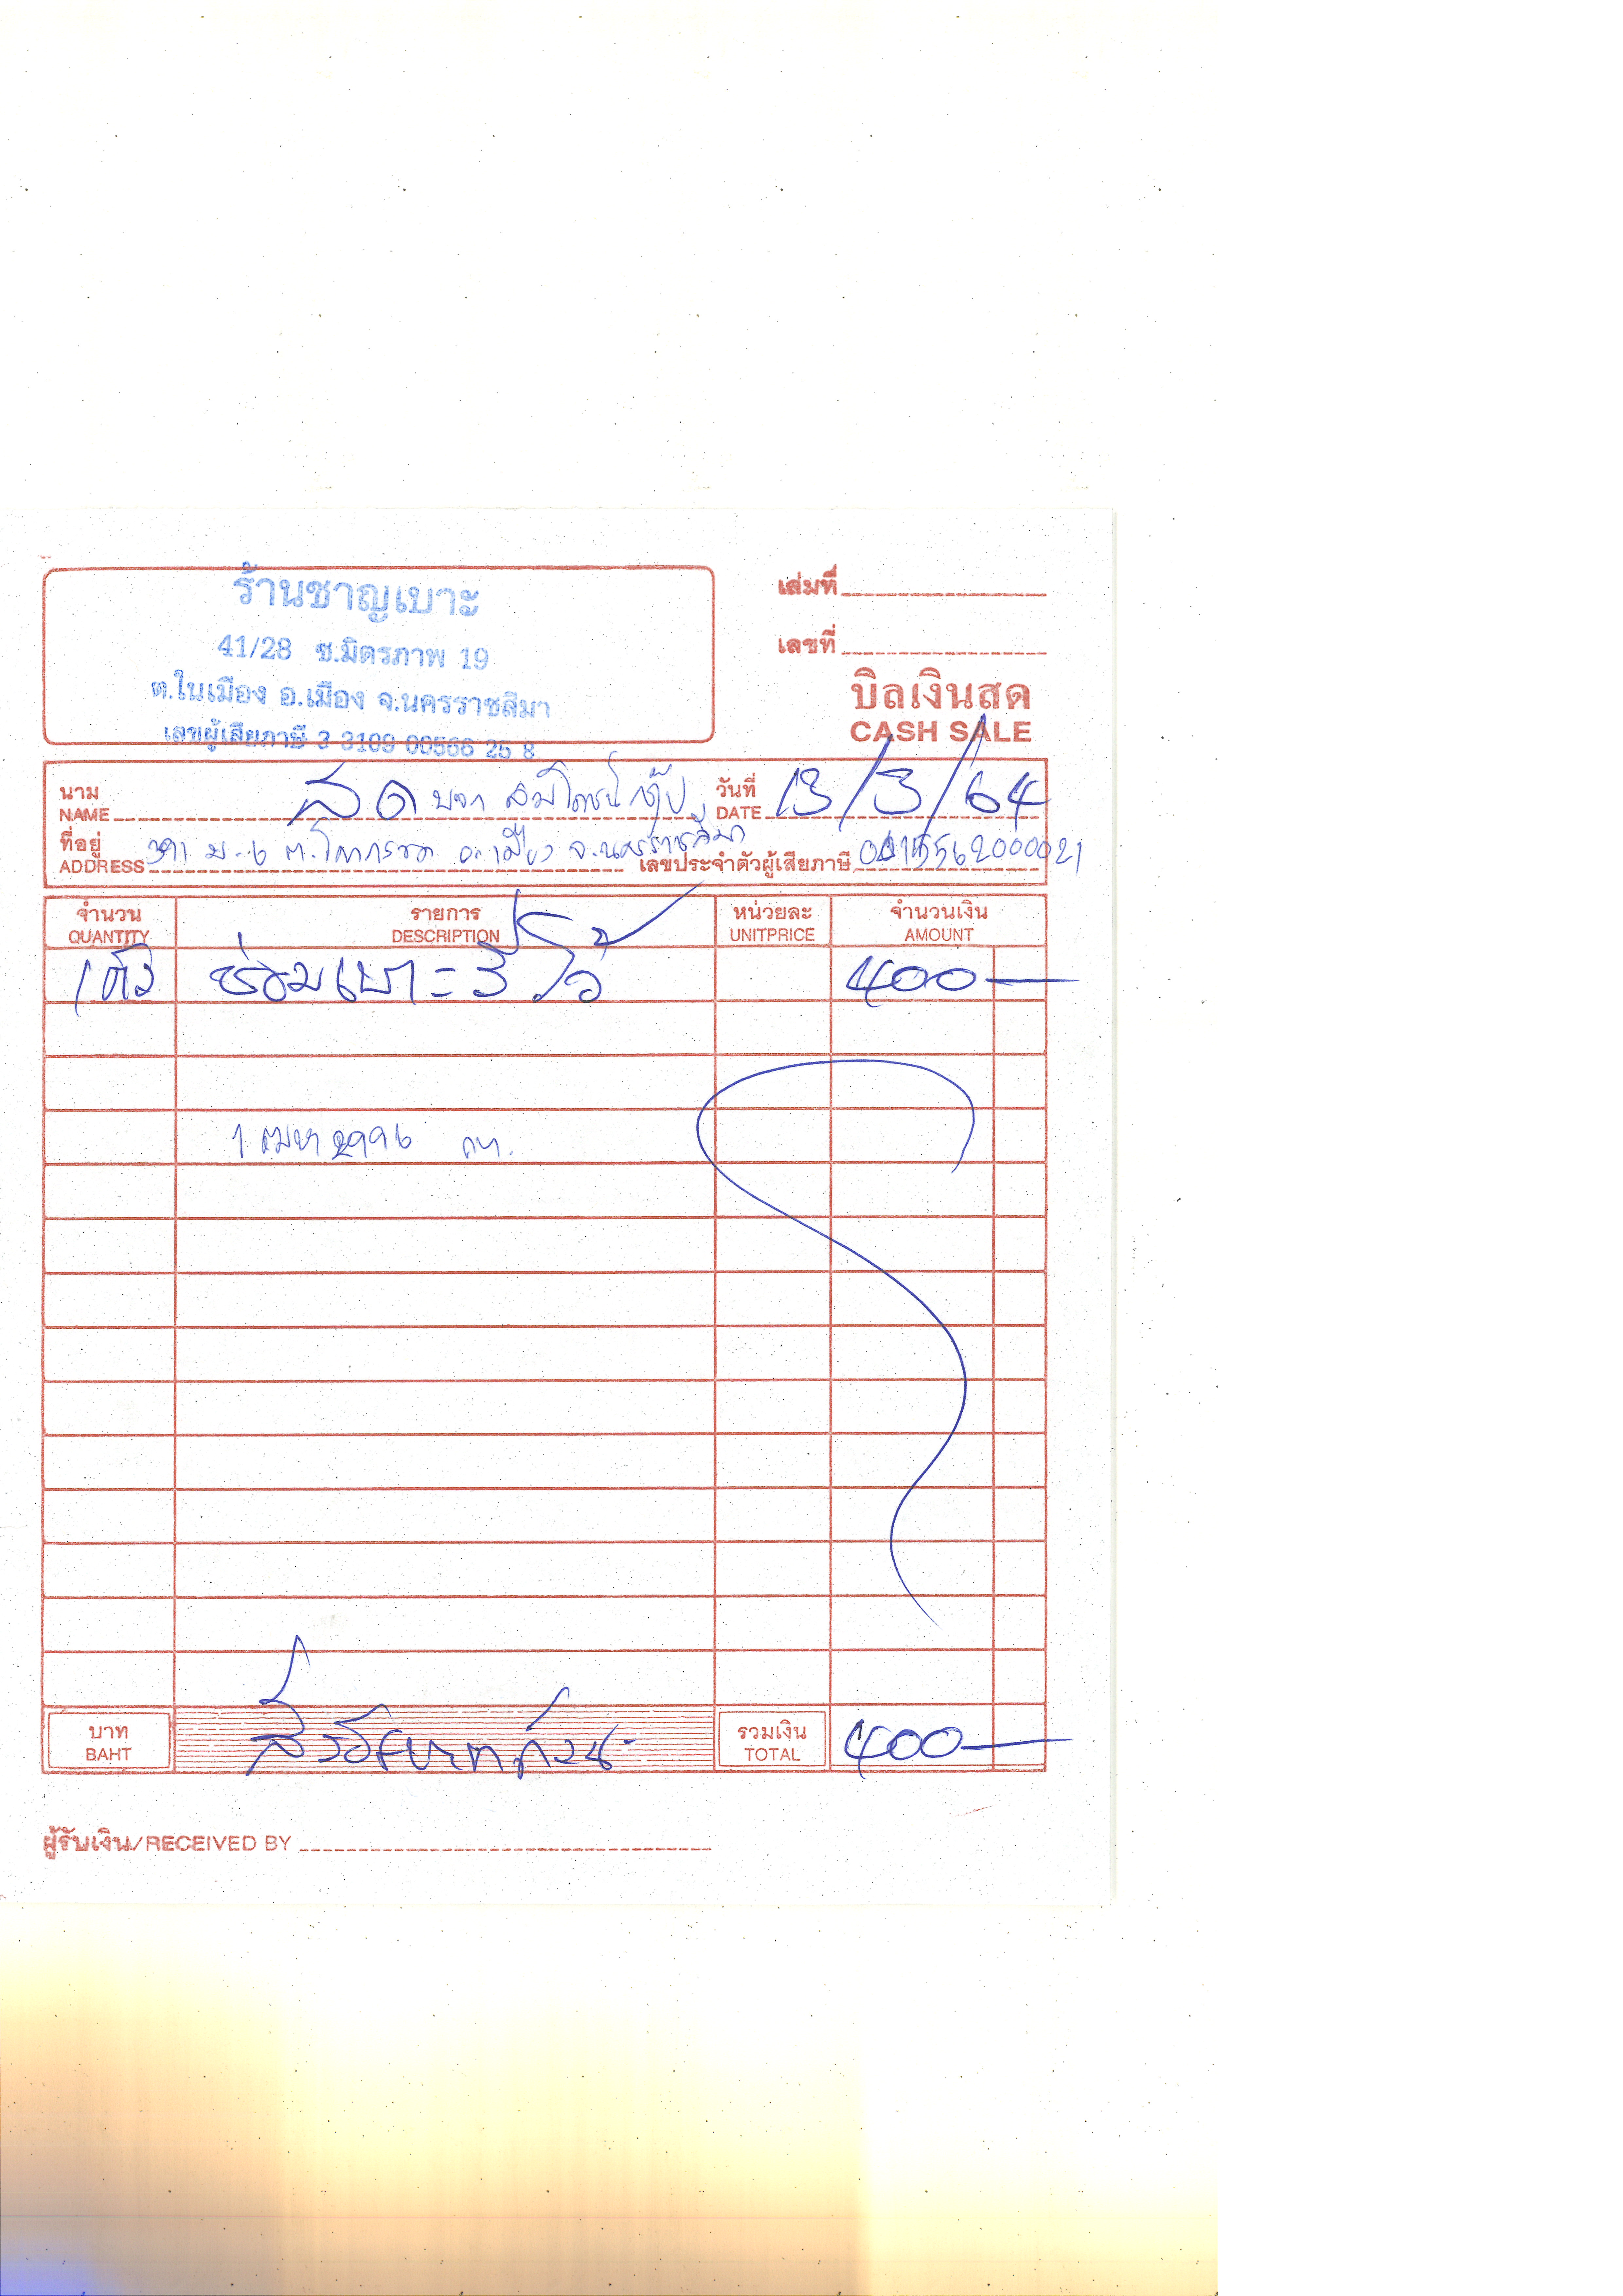 ร้านชาญเบาะ
41/28 ซ.มิตรภาพ 19
ต.ในเมือง อ.เมือง จ.นครราชสีมา
เลขผู้เสียภาษี 3 3109 00566 25 8
เล่มที่
เลขที่
บิลเงินสด
CASH SALE
นาม สด บจก
NAME
วันที่ 13/3/64
DATE
ที่อยู่ ม.6 ต.โคกกรวด อ.เมือง จ.นครราชสีมา
ADDRESS
เลขประจำตัวผู้เสียภาษี
จำนวน รายการ หน่วยละ จำนวนเงิน
QUANTITY DESCRIPTION UNITPRICE AMOUNT
1 ตัว ซ่อมเบาะ 400-
บาท รวมเงิน 400-
BAHT TOTAL
ผู้รับเงิน/RECEIVED BY